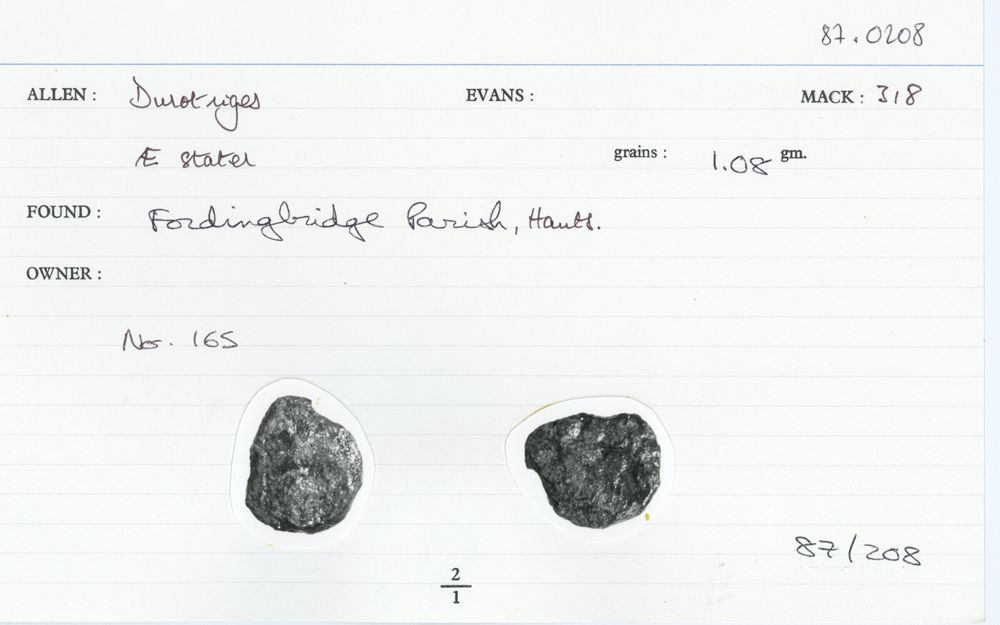 87.0208
ALLEN : Durotriges EVANS : MACK : 318
Æ stater grains : 1.08 gm.
FOUND : Fordingbridge Parish, Hants.
OWNER :
No. 165
87/208
2
1